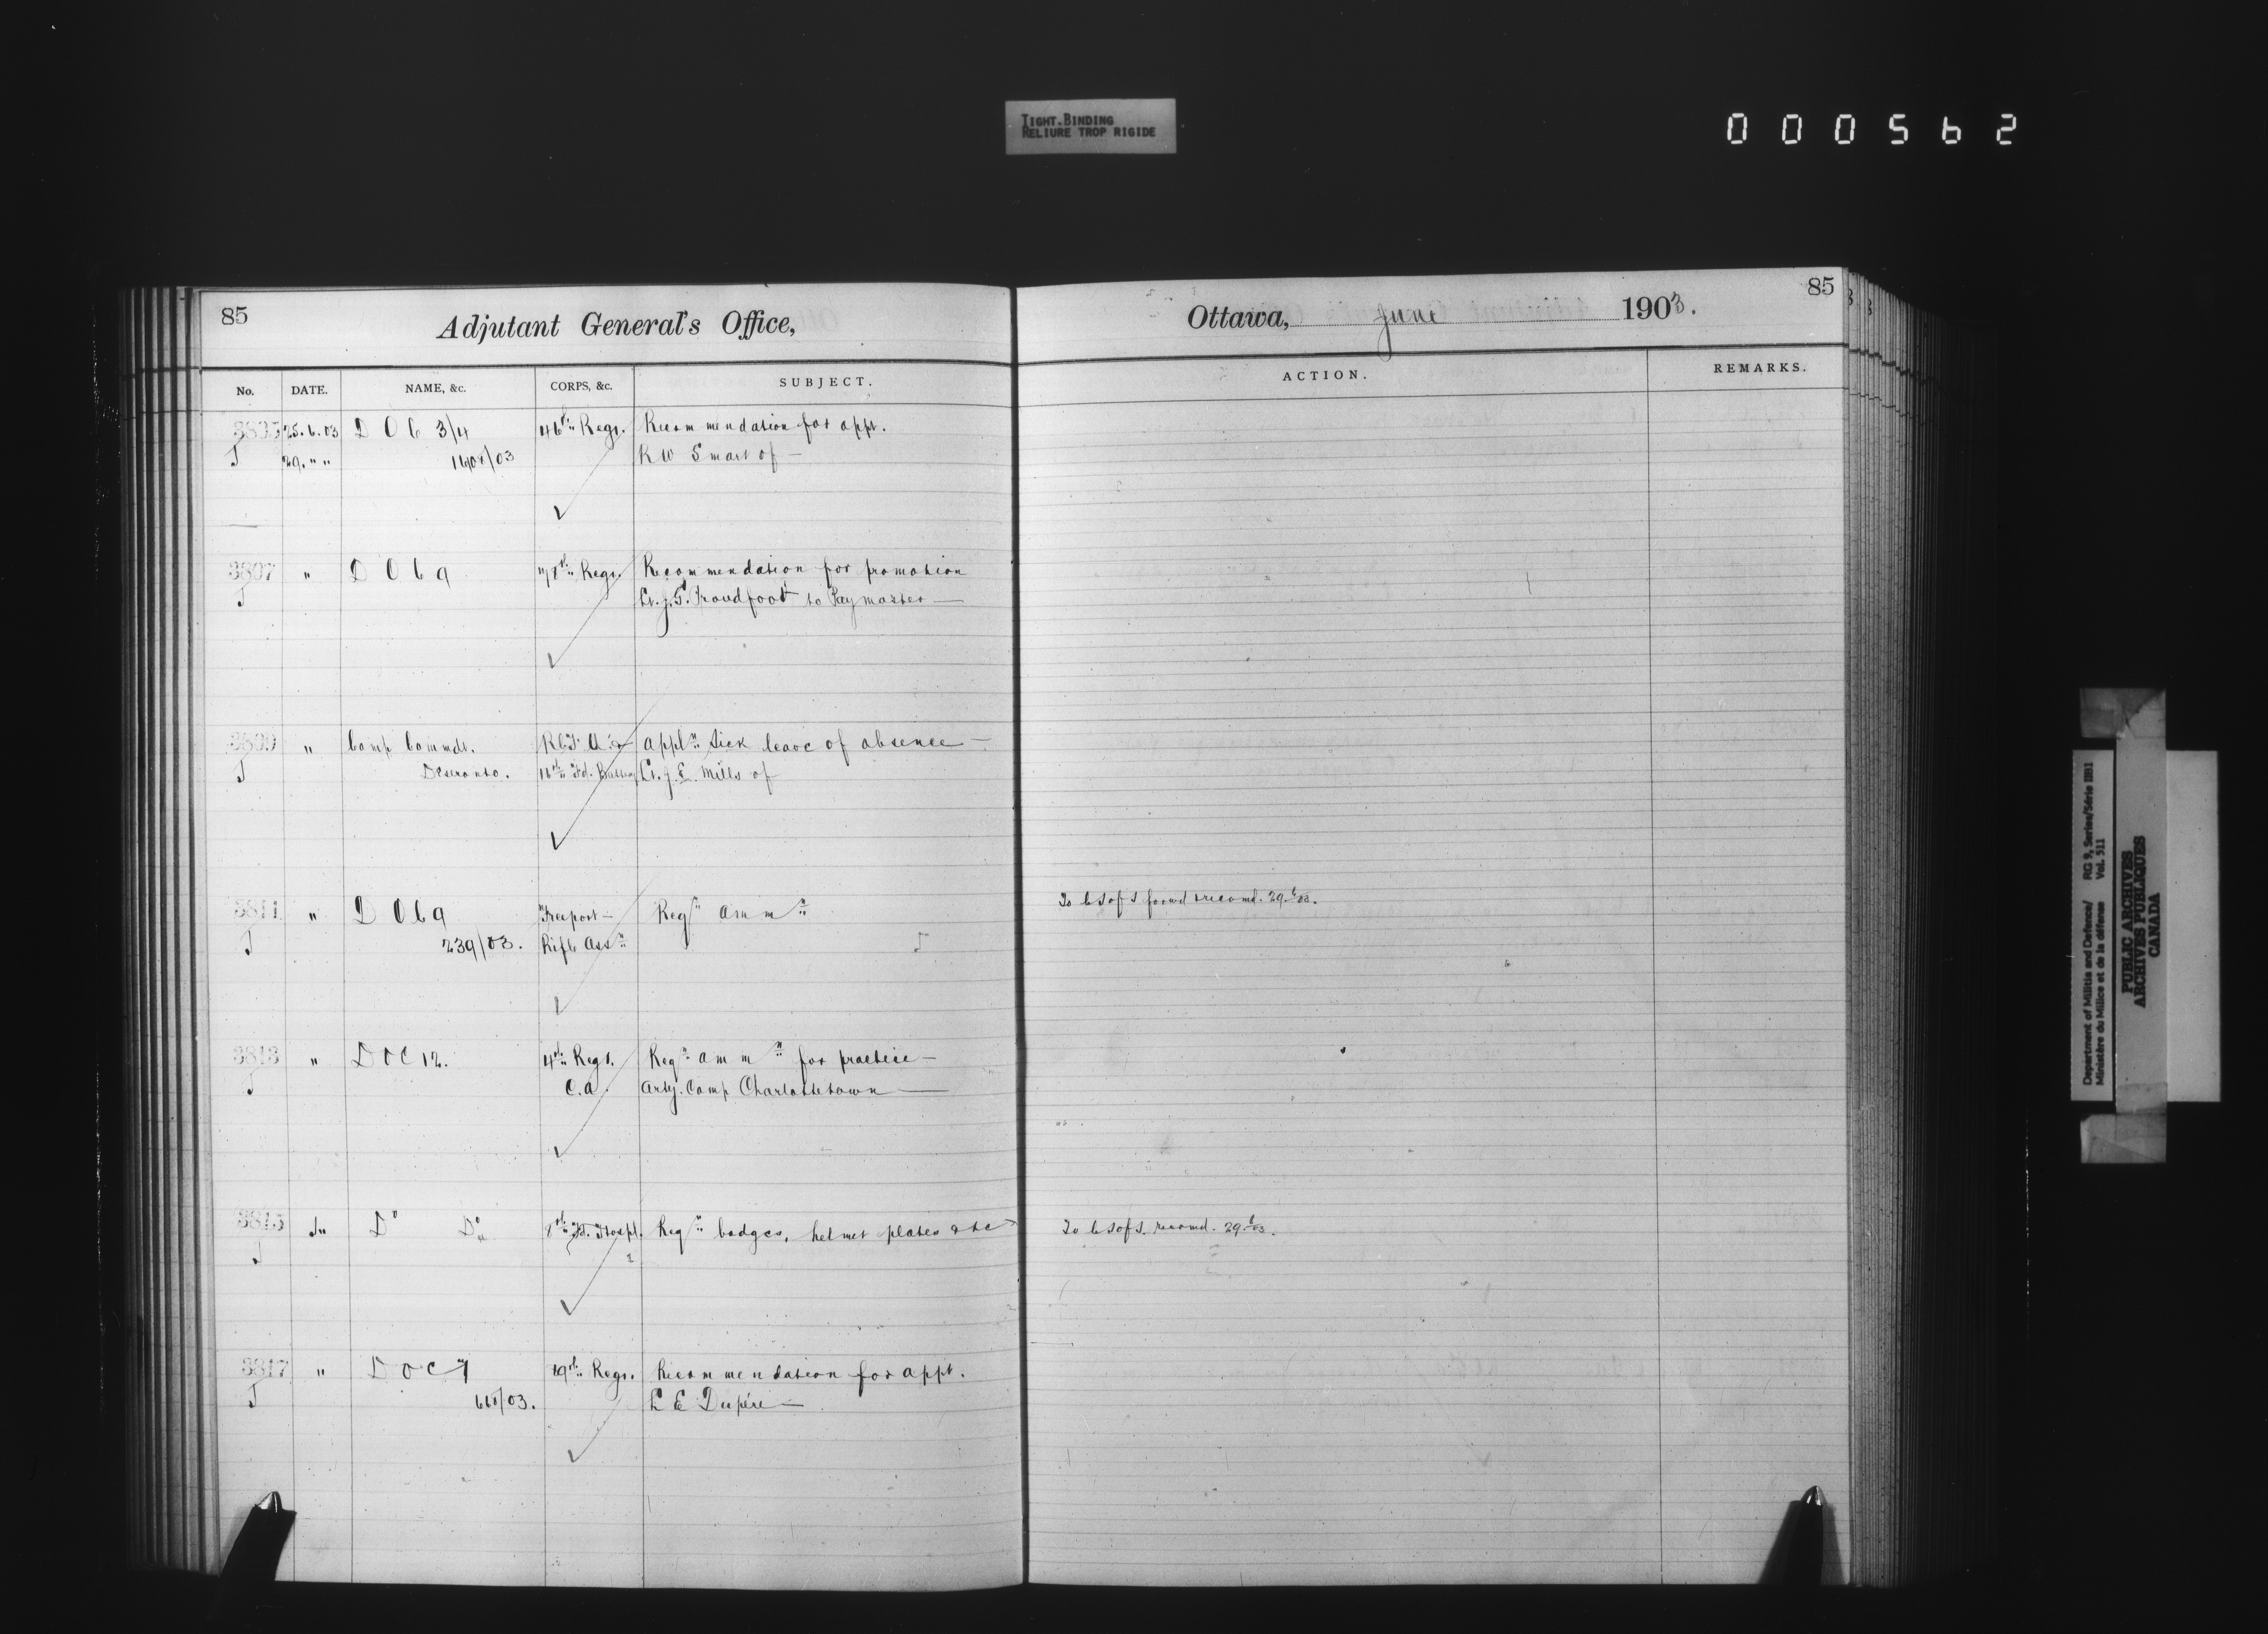 TIGHT BINDING
RELIURE TROP RIGIDE
000562
85
Adjutant General's Office,
Ottawa, June 1903.
85
No. DATE. NAME, &c. CORPS, &c. SUBJECT. ACTION. REMARKS.
3805 25.6.03 D O C 3/4 46th Regt. Recommendation for appt.
J 29. " " /03 R W Smart of —
3807 " D O C 9 78th Regt. Recommendation for promotion
J Lt. J. G. Proudfoot to Paymaster —
3809 " Camp Commdt. appln sick leave of absence —
J Deseronto. 16th Fd. Battery Lt. J. E. Mills of
3811 " D O C 9 Freeport — Reqn ammn To C S of S forwd & recomd. 29.6.03.
J 239/03. Rifle Assn
3813 " D O C 12. 4th Regt. Reqn ammn for practice —
J C.A. Arty. Camp Charlottetown —
3815 " Do Do 8th Fd. Hospl. Reqn badges, helmet plates &c To C S of S. recomd. 29.6.03.
J
3817 " D O C 7 Regt. Recommendation for appt.
J /03. L E Dupéré —
Department of Militia and Defence/ RG 9, Series/Série IIB1
Ministère du Milice et de la défense Vol. 511
PUBLIC ARCHIVES
ARCHIVES PUBLIQUES
CANADA